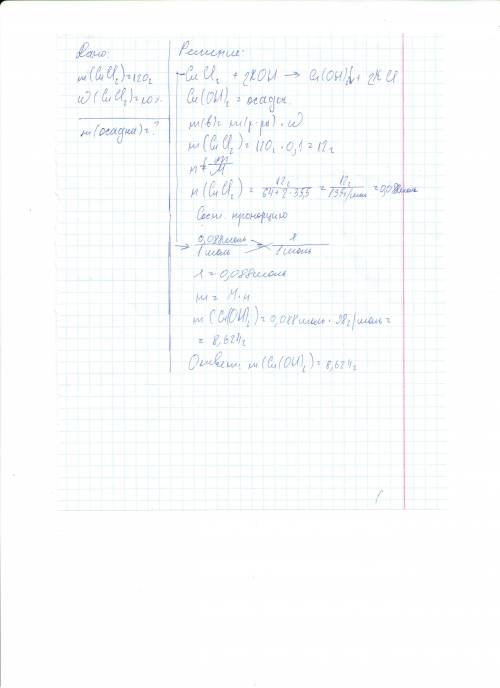 Дано:
m(CuCl₂)=120г
W(CuCl₂)=10%
m(осадка)=?
Решение:
CuCl₂ + 2KOH → Cu(OH)₂↓ + 2KCl
Cu(OH)₂ = осадок.
m(в)= m(р-ра) · w
m(CuCl₂)= 120г · 0,1 = 12г
n(CuCl₂) = 12г / 64+2·35,5 = 12г / 135г/моль = 0,088моль
Сост. пропорцию
0,088моль / 1моль = x / 1моль
x = 0,088моль
m = M·n
m(Cu(OH)₂)=0,088моль · 98г/моль =
= 8,624г
Ответ: m(Cu(OH)₂) = 8,624г